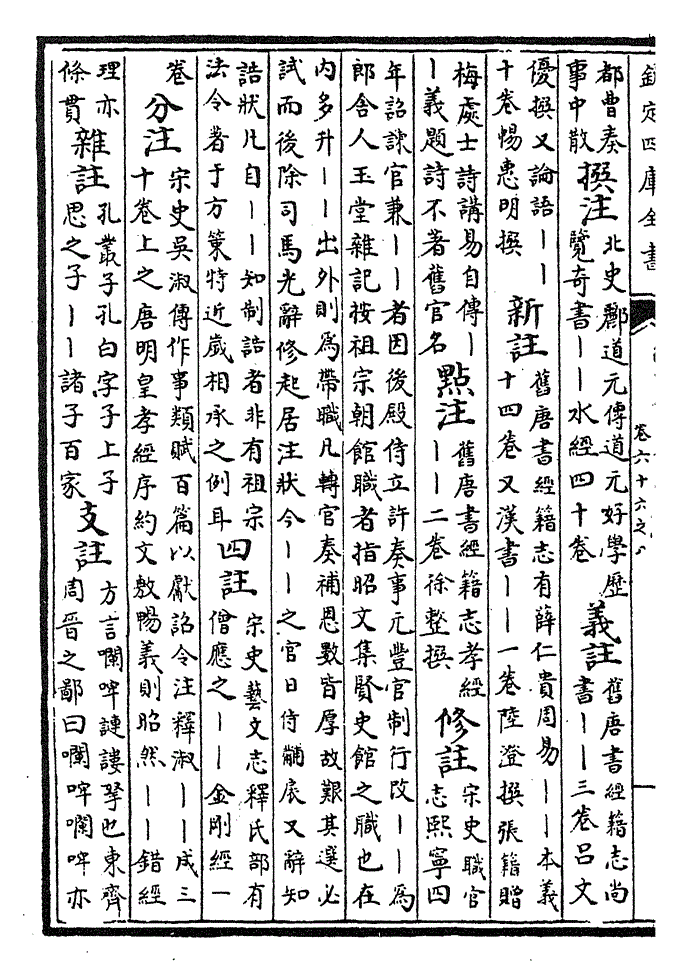 欽定四庫全書
卷六十六之八
都曹奏
事中散
撰注
北史酈道元傳道元好學歷
覽奇書——水經四十卷
義註
舊唐書經籍志尚
書——三卷呂文
優撰又論語——
十卷暢惠明撰
新註
舊唐書經籍志有薛仁貴周易——本義
十四卷又漢書——一卷陸澄撰張籍贈
梅處士詩講易自傳—
—義題詩不著舊官名
點注
舊唐書經籍志孝經
——二卷徐整撰
修註
宋史職官
志熙寧四
年詔諫官兼——者因後殿侍立許奏事元豐官制行改——為
郎舍人玉堂雜記按祖宗朝館職者指昭文集賢史館之職也在
内多升——出外則為帶職凡轉官奏補恩數皆厚故艱其選必
試而後除司馬光辭修起居注狀今——之官日侍黼扆又辭知
誥狀凡自——知制誥者非有祖宗
法令著于方策特近嵗相承之例耳
四註
宋史藝文志釋氏部有
僧應之——金剛經一
卷
分注
宋史吳淑傳作事類賦百篇以獻詔令注釋淑——成三
十卷上之唐明皇孝經序約文敷暢義則昭然——錯經
理亦
條貫
雜註
孔叢子孔白字子上子
思之子——諸子百家
支註
方言㘓哰謰謱拏也東齊
周晉之鄙曰㘓哰㘓哰亦